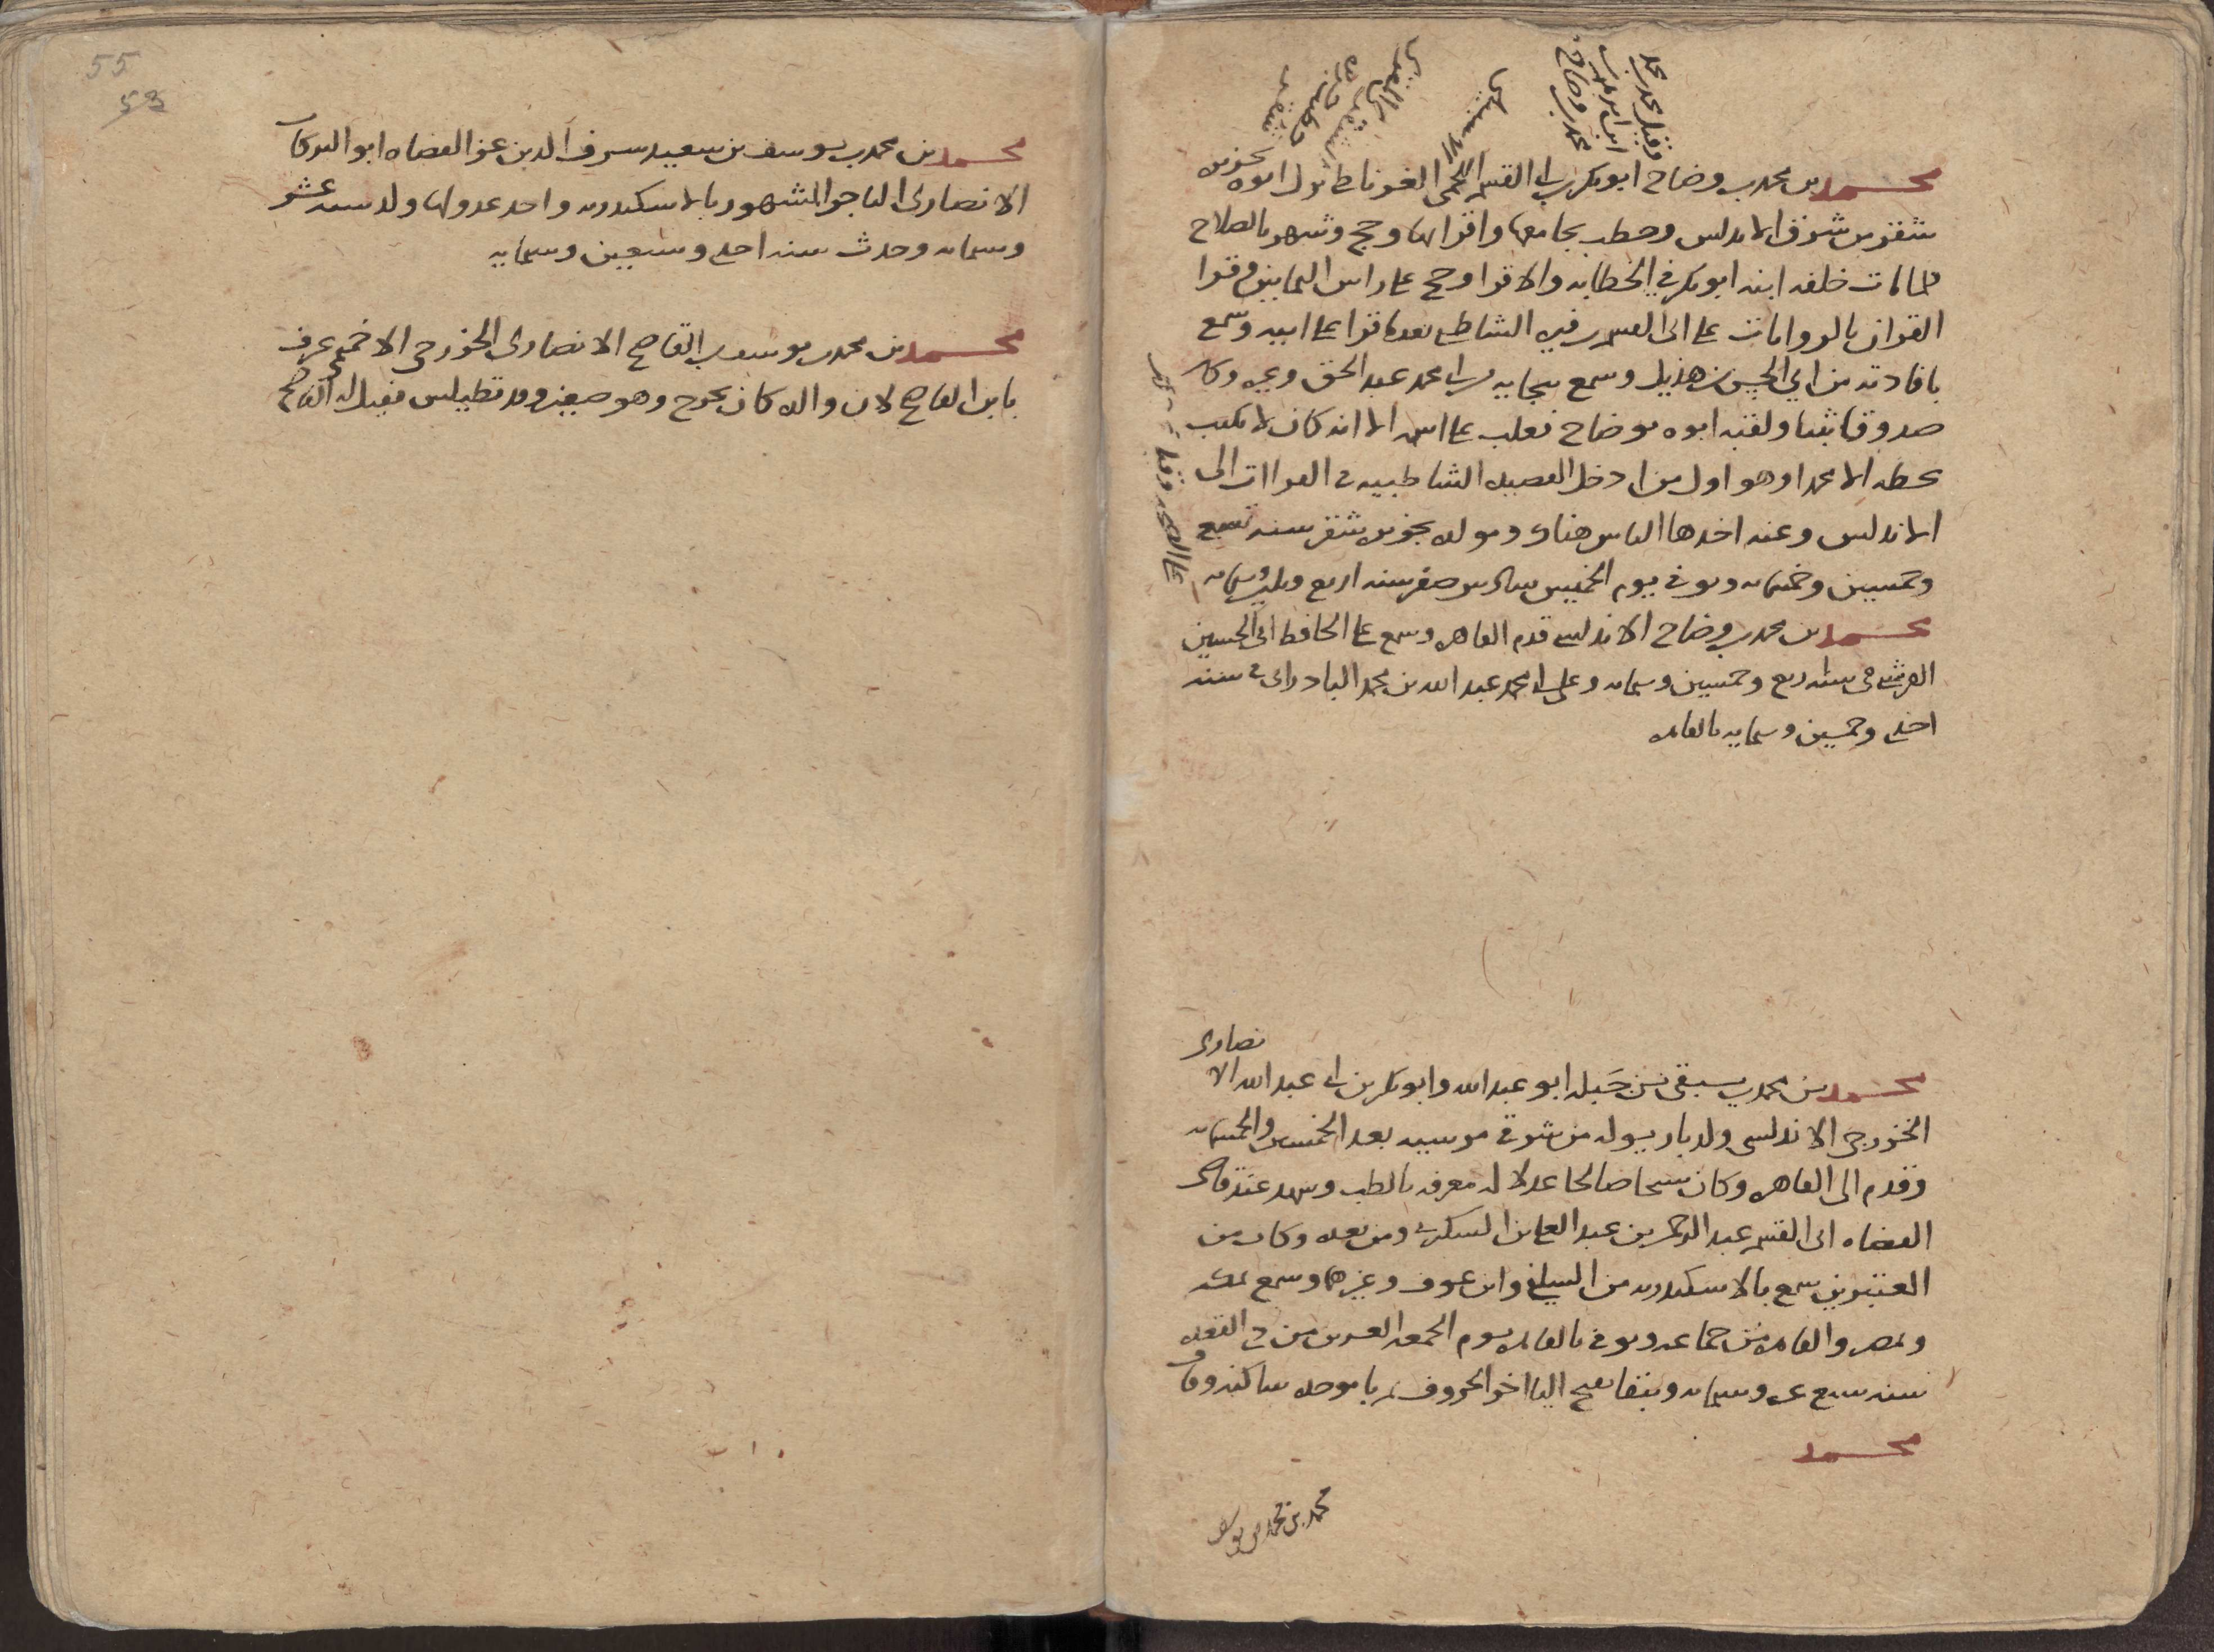 وقيل محمد بن محمد
ابن ابراهيم بن
محمد بن وضاح
محمد بن محمد بن وضاح ابو بكر بن ابى القسم اللخمى الغرناطى نزل ابوه بجزيره
شقر من شرق الاندلس وخطب بجامعها واقرا بها وحج وشهر بالصلاح
فلما مات خلفه ابنه ابو بكر فى الخطابه والاقرا وحج على راس الثمانين وقرا
القران بالروايات على ابى القسم بن فيره الشاطبى بعدما قرا على ابيه وسمع
بافادته من ابى الحسن بن هذيل وسمع ببجايه من ابى محمد عبد الحق وغيره وكان
صدوقا ثبتا ولقبه ابوه بوضاح فغلب على اسمه الا انه كان لا يكتب
بخطه الا محمدا وهو اول من ادخل القصيده الشاطبيه فى القراات الى
الاندلس وعنه اخدها الناس هناك ومولده بجزيره شقر سنه تسع
وخمسين وخمسمايه وتوفى يوم الخميس سادس صفر سنه اربع وثلثين وستمايه
محمد بن محمد بن وضاح الاندلسى قدم القاهره وسمع على الحافظ ابى الحسين
القرشى فى سنه اربع وخمسين وستمايه وعلى ابى محمد عبد الله بن محمد البادرائى فى سنه
احدى وخمسين وستمايه بالقاهره
محمد بن محمد بن يبقى بن جبله ابو عبد الله وابو بكر بن ابى عبد الله الانصارى
الخزرجى الاندلسى ولد باريوله من شرقى مرسيه بعد الخمسين والخمسمايه
وقدم الى القاهره وكان شيخا صالحا عدلا له معرفه بالطب وشهد عند قاضى
القضاه ابى القسم عبد الرحمن بن عبد العلى بن السكرى ومن بعده وكان من
المعتبرين سمع بالاسكندريه من السلفى وابن عوف وغيرهما وسمع بمكه
وبمصر والقاهره من جماعه وتوفى بالقاهره يوم الجمعه العشرين من ذى القعده
سنه سبع عشره وستمايه ويبقا بفتح اليا اخر الحروف ثم با موحده ساكنه وقاف
محمد
محمد بن محمد بن يوسف
55
53
محمد بن محمد بن يوسف بن سعيد شرف الدين عز القضاه ابو البركات
الانصارى التاجر المشهور بالاسكندريه واحد عدولها ولد سنه عشر
وستمايه وحدث سنه احدى وسبعين وستمايه
محمد بن محمد بن يوسف بن القاصح الانصارى الخزرجى الاخميمى عرف
بابن القاصح لان والده كان يخرج وهو صغير وقد تطيلس فقيل له القاصح